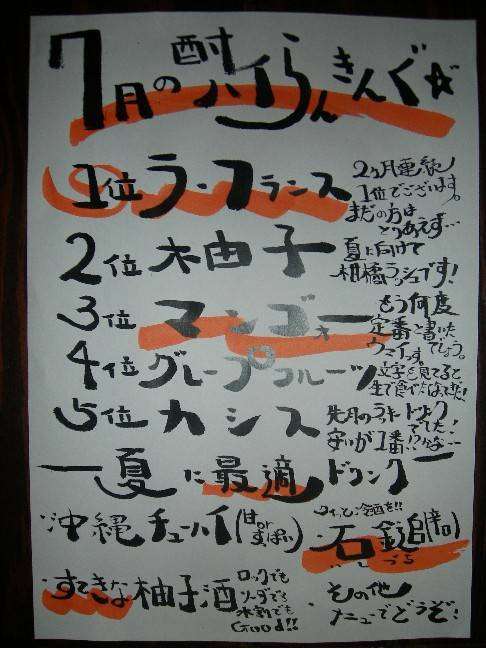 7月の酎ハイらんきんぐ☆
1位 ラ・フランス
2ヵ月連続
1位でございます。
まだの方は
とりあえず…
2位 柚子
夏に向けて
柑橘ラッシュです!
3位 マンゴォー
もう何度
定番と書いた
でしょう。
ウマイっす
4位 グレープフルーツ
文字を見てると
生で食べたくなってきた!
5位 カシス
先月のラッキードリンク
でした!
安いが1番!?かな…
夏に最適ドリンク
・沖縄チューハイ(甘or すっぱい)
・石鎚(辛口)
づち
・すてきな柚子酒
ロックでも
ソーダでも
水割でも
Good!!
・その他
メニューでどうぞ!